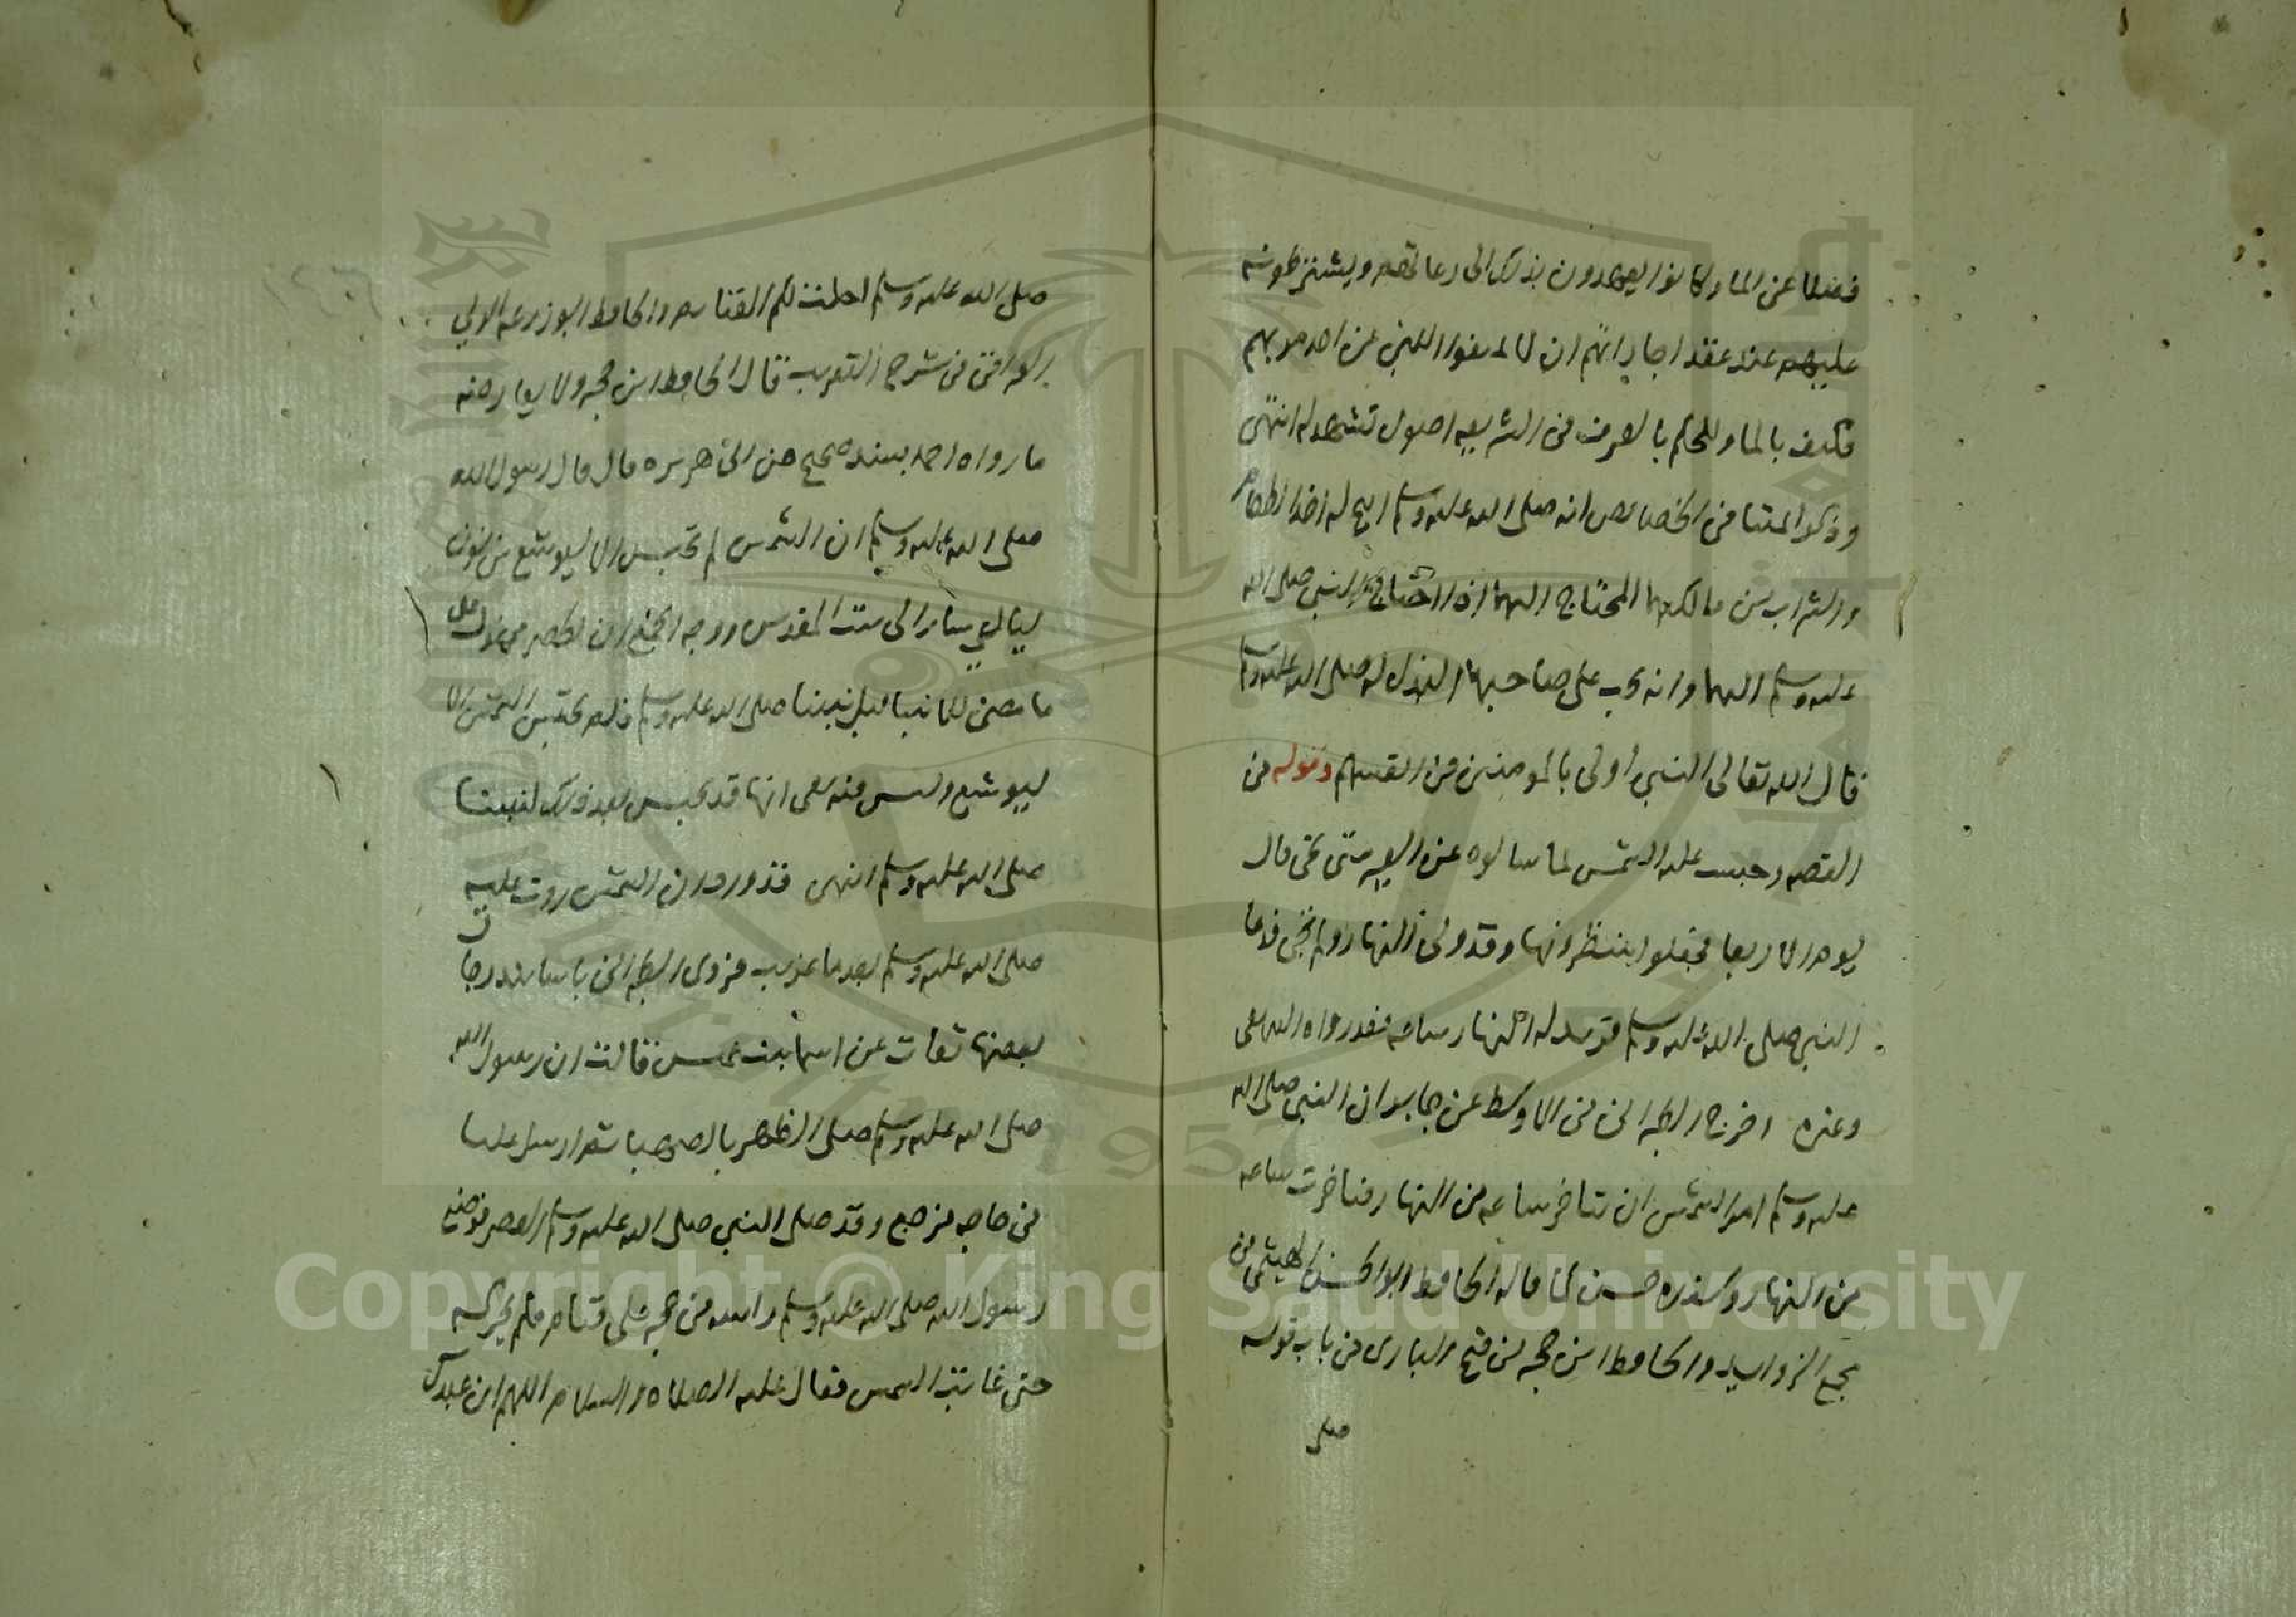 فضلا عن الماء وكانوا يعهدون بذلك الى رعاتهم ويشترطونه
عليهم عند عقد اجاراتهم ان لا يمنعوا اللبن من احد مر بهم
فكيف بالماء وللحكم بالعرف في الشريعه اصول تشهد له انتهى
وذكر ائمتنا في الخصايص انه صلى الله عليه وسلم ابيح له اخذ الطعام
والشراب من مالكهما المحتاج اليهما اذا احتاج النبي صلى الله
عليه وسلم اليهما وانه يجب على صاحبهما البذل له صلى الله عليه وسلم
قال الله تعالى النبي اولى بالمومنين من انفسهم وقوله في
القصه وحبست عليه الشمس لما سالوه عن العير متى تجي قال
يوم الاربعا فجعلوا ينتظرونها وقد ولى النهار ولم تجي فدعا
النبي صلى الله عليه وسلم فزيد له في النهار ساعه فقد رواه البيهقي
وغيره اخرج الطبراني في الاوسط عن جابر ان النبي صلى الله
عليه وسلم امر الشمس ان تتاخر ساعه من النهار فتاخرت ساعه
من النهار وسنده حسن كما قاله الحافظ ابو الحسن الهيثمي في
مجمع الزوايد والحافظ ابن حجر في فتح الباري في باب قوله
صلى
صلى الله عليه وسلم احلت لكم الغنايم والحافظ ابو زرعه
العراقي في شرح التقريب قال الحافظ ابن حجر ولا يعارضه
ما رواه احمد بسند صحيح عن ابي هريره قال قال رسول الله
صلى الله عليه وسلم ان الشمس لم تحتبس الا ليوشع بن نون
ليالي سار الى بيت المقدس ووجه الجمع ان الحصر محمول على
ما مضى للانبيا قبل نبينا صلى الله عليه وسلم فلم تحتبس الشمس الا
ليوشع وليس فيه نفي انها قد تحبس بعد ذلك لنبينا
صلى الله عليه وسلم انتهى فقد ورد ان الشمس ردت عليه
صلى الله عليه وسلم بعدما غربت فروى الطبراني باسانيد رجال
بعضها ثقات عن اسما بنت عميس قالت ان رسول الله
صلى الله عليه وسلم صلى الظهر بالصهبا ثم ارسل عليا
في حاجه فرجع وقد صلى النبي صلى الله عليه وسلم العصر فوضع
رسول الله صلى الله عليه وسلم راسه في حجر علي فنام فلم يحركه
حتى غابت الشمس فقال عليه الصلاه والسلام اللهم ان عبدك
Copyright © King Saud University
1957